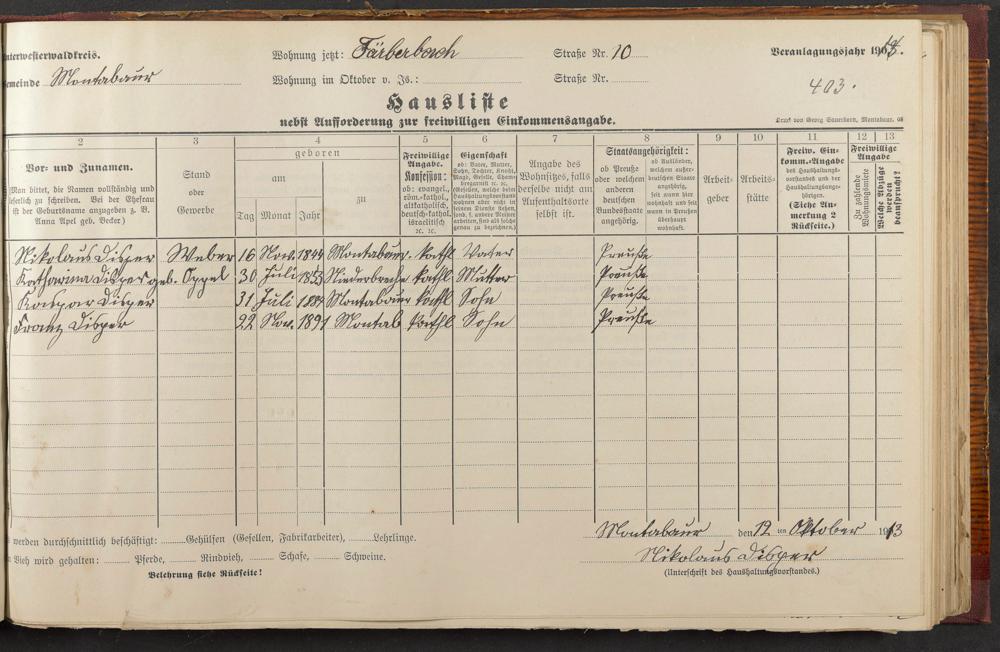 Unterwesterwaldkreis.
Gemeinde Montabaur
Wohnung jetzt: Färberbach Straße Nr. 10
Wohnung im Oktober v. Js.: Straße Nr.
Veranlagungsjahr 1914.
403.
Hausliste
nebst Aufforderung zur freiwilligen Einkommensangabe.
Druck von Georg Sauerborn, Montabaur. 08
2 3 4 5 6 7 8 9 10 11 12 13
Vor- und Zunamen.
Man bittet, die Namen vollständig und
leserlich zu schreiben. Bei der Ehefrau
ist der Geburtsname anzugeben z. B.
Anna Apel geb. Becker.)
Stand
oder
Gewerbe
geboren
am
zu
Tag Monat Jahr
Freiwillige
Angabe.
Konfession:
ob: evangel.,
röm.-kathol.,
altkatholisch,
deutsch-kathol.
israelitisch
ꝛc. ꝛc.
Eigenschaft
ob: Vater, Mutter,
Sohn, Tochter, Knecht,
Magd, Geselle, Chambregarnist ꝛc. ꝛc.
Angabe des
Wohnsitzes, falls
derselbe nicht am
Aufenthaltsorte
selbst ist.
Staatsangehörigkeit:
ob Preuße
oder welchem
anderen
deutschen
Bundesstaate
angehörig.
ob Ausländer,
welchem außerdeutschen Staate
angehörig,
seit wann hier
wohnhaft und seit
wann in Preußen
überhaupt
wohnhaft.
Arbeitgeber
Arbeitsstätte
Freiw. Einkomm.-Angabe
des Haushaltungsvorstandes und der
Haushaltungsangehörigen.
(Siehe Anmerkung 2
Rückseite.)
Freiwillige
Angabe
Zu zahlende
Wohnungsmiete
Welche Abzüge
werden
beansprucht?
Nikolaus Disper Weber 16 Nov. 1844 Montabaur. kathl Vater Preuße
Katharina Disper geb. Oppel 30 Juli 1853 Niederbreche kathl Mutter Preuße
Kaspar Disper 31 Juli Montabaur kathl Sohn Preuße
Franz Disper 22 Nov. 1891 Montab kathl Sohn Preuße
werden durchschnittlich beschäftigt: Gehülfen (Gesellen, Fabrikarbeiter), Lehrlinge.
Vieh wird gehalten: Pferde, Rindvieh, Schafe, Schweine.
Belehrung siehe Rückseite!
Montabaur den 12 ten Oktober 1913
Nikolaus Disper
(Unterschrift des Haushaltungsvorstandes.)